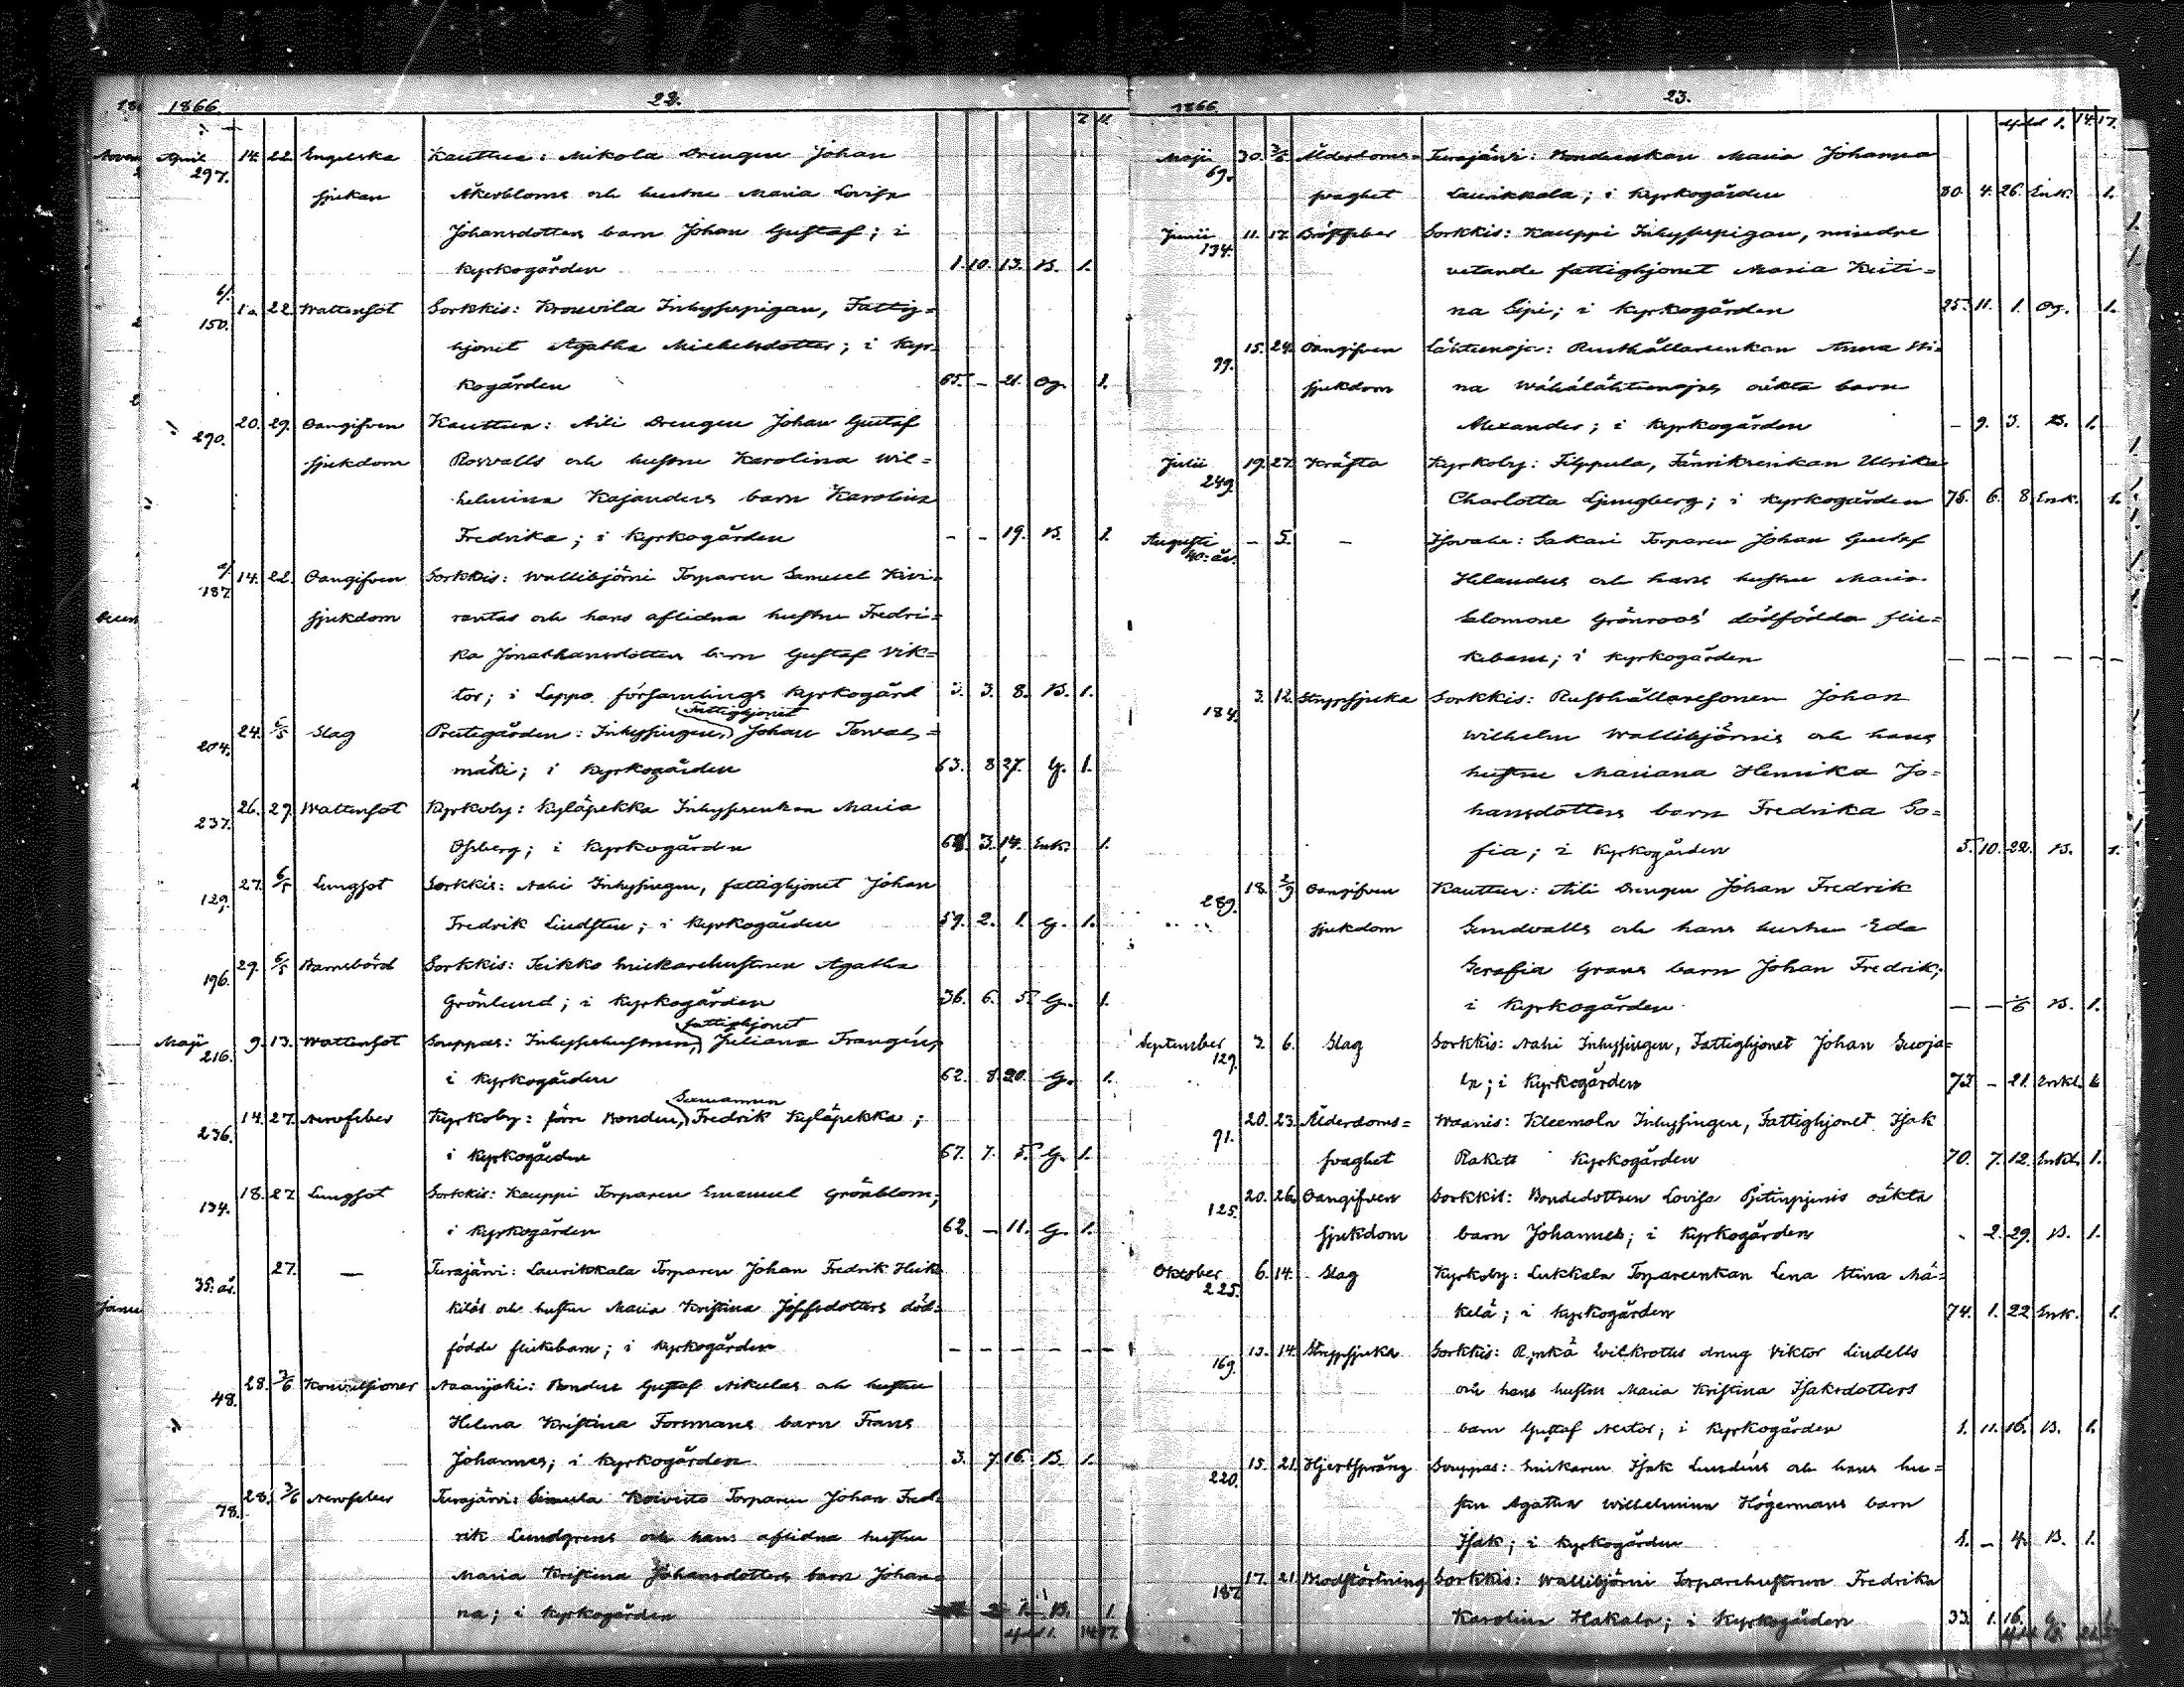 1866. 22.
April 14. 22. Engelska Kauttua: Mikola Drengen Johan
297. sjukan Åkerbloms och hustru Maria Lovisa
Johansdotters barn Johan Gustaf; i
Kyrkogården 1. 10. 13. B. 1.
22. Wattensot Sorkkis: Krouvila Inhysespigan, Fattig=
150. hjonet Agatha Michelsdotter; i Kyr-
kogården 65. - 21. Og. 1.
20. 29. Oangifven Kauttua: Aili Drengen Johan Gustaf
290. sjukdom Rosvalls och hustru Karolina Wil=
helmina Kajanders barn Karolina
Fredrika; i Kyrkogården - - 19. B. 1.
14. 22. Oangifven Sorkkis: Wallibjörni Torparen Samuel Kivi-
187. sjukdom rantas och hans aflidna hustru Fredri=
ka Jonathansdotters barn Gustaf Vik=
tor; i Lappo församlings Kyrkogård 3. 3. 8. B. 1.
Fattighjonet
24. 6/5 Slag Prestegården: Inhysingen, Johan Tervas=
204. mäki; i Kyrkogården 63. 8 27. G. 1.
26. 29. Wattensot Kyrkoby: Kyläpekka Inhysesenkan Maria
237. Osberg; i Kyrkogården 3. 14. Enk. 1.
27. 6/5 Lungsot Sorkkis: Nahi Inhysingen, fattighjonet Johan
129. Fredrik Lindsten; i Kyrkogården 59. 2. 1. G. 1.
29. 6/5 Barnsbörd Sorkkis: Seikko Snickarehustrun Agatha
196. Grönlund; i Kyrkogården 36. 6. 5. G. 1.
fattighjonet
Maji 9. 13. Wattensot Souppas: Inhyseshustrun, Juliana Frangén;
216. i Kyrkogården 62. 8 20. G. 1.
Sexmannen
14. 27. Nervfeber Kyrkoby: förre Bonden, Fredrik Kyläpekka;
236. i Kyrkogården 67. 7. 5. G. 1.
18. 27 Lungsot Sorkkis: Kauppi Torparen Emanuel Grönblom;
134. i Kyrkogården 62. - 11. G. 1.
27. - Turajärvi: Laurikkala Torparen Johan Fredrik Heik-
35: än. kiläs och hustru Maria Kristina Josefsdotters död=
födde flickebarn; i Kyrkogården - - - - - -
28. 3/6 Konvulsioner Naarijoki: Bonden Gustaf Nikulas och hustru
48. Helena Kristina Forsmans barn Frans
Johannes; i Kyrkogården 3. 7 16. B. 1.
28. 3/6 Nervfeber Turajärvi: Simula Koivisto Torparen Johan Fred-
78. rik Lundgrens och hans aflidna hustru
Maria Kristina Johansdotters barn Johan-
na; i Kyrkogården B. 1
1866. 23.
Maji 30. 3/6 Ålderdoms= Turajärvi: Bondeenkan Maria Johanna
69. svaghet Laurikkala; i Kyrkogården 80. 4. 26. Enk. 1.
Junii 11. 17. Bröstfeber Sorkkis: Kauppi Inhysespigan, mindre
134. vetande fattighjonet Maria Kristi=
na Sipi; i Kyrkogården 25. 11. 1. Og. 1.
15. 24. Oangifven Lähteenoja: Rusthållareenkan Anna Sti=
99. sjukdom na Wähälähteenojas oäkta barn
Alexander; i Kyrkogården - 9. 3. B. 1.
Julii 19. 27. Kräfta Kyrkoby: Filppula, Fänriksenkan Ulrika
249. Charlotta Ljungberg; i Kyrkogården 75. 6. 8. Enk. 1.
Augusti - 5. - Isovahe: Sakari Torparen Johan Gustaf
40: än. Helanders och hans hustru Maria
Salomone Grönroos' dödfödda flic=
kebarn; i Kyrkogården - - - - - -
3. 12. Strypsjuka Sorkkis: Rusthållaresonen Johan
184. Wilhelm Wallibjörnis och hans
hustru Mariana Henrika Jo=
hansdotters barn Fredrika So=
fia; i Kyrkogården 5. 10. 22. B. 1.
18. 2/9 Oangifven Kauttua: Aili Drengen Johan Fredrik
289. sjukdom Sundvalls och hans hustru Eda
Serafia Grans barn Johan Fredrik;
i Kyrkogården - - B. 1.
September 3. 6. Slag Sorkkis: Nahi Inhysingen, Fattighjonet Johan Suoja=
129. ln; i Kyrkogården 73. - 21. Enkl. 1.
20. 23. Ålderdoms= Waanis: Kleemola Inhysingen, Fattighjonet Isak
91. svaghet Raketti Kyrkogården 70. 7. 12. Enkl. 1.
20. 26. Oangifven Sorkkis: Bondedottren Lovisa oäkta
125. sjukdom barn Johannes; i Kyrkogården - 2. 29. B. 1.
Oktober 6. 14. Slag Kyrkoby: Lukkala Torpareenkan Lena Stina Mä=
225. kelä; i Kyrkogården 74. 1. 22 Enk. 1.
13. 14. Strypsjuka Sorkkis: drng Viktor Lindells
169. och hans hustru Maria Kristina Isaksdotters
barn Gustaf Nestor; i Kyrkogården 1. 11. 16. B. 1.
15. 21. Hjertsprång Souppas: Snickaren Isak Lundéns och hans hu=
220. stru Agatha Wilhelmina Högermans barn
Isak; i Kyrkogården 1. - 4. B. 1.
17. 21. Blodstörtning Sorkkis: Wallibjörni Torparehustrun Fredrika
187. Karolina Hakala; i Kyrkogården 33. 1. 16. G.